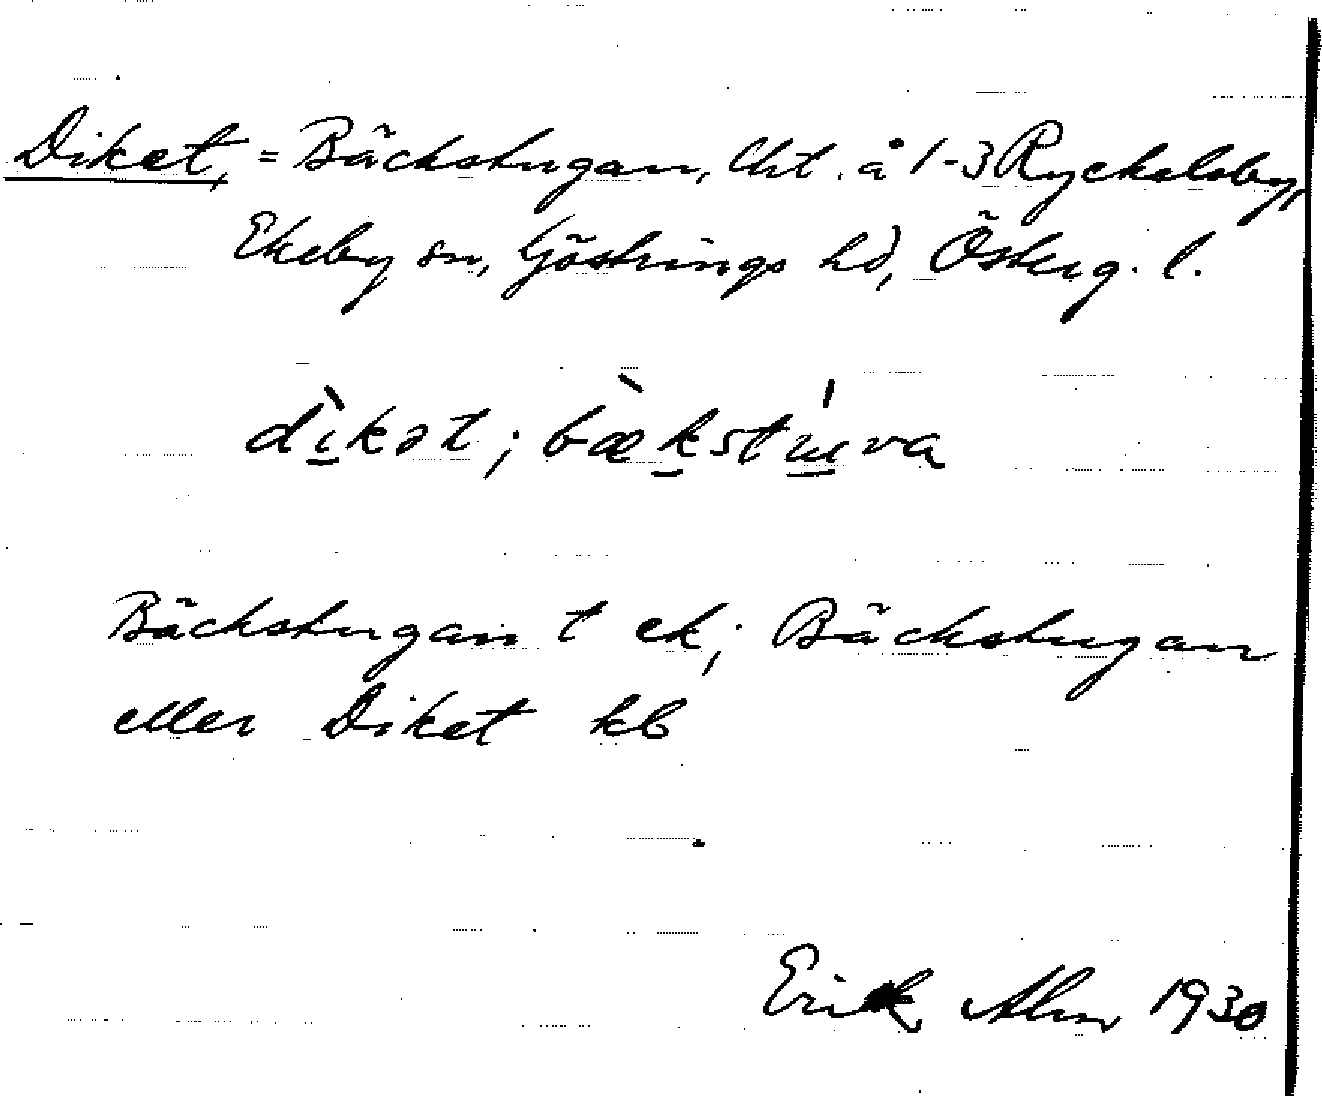 Diket, = Bäckstugan, lht. å 1-3 Ryckelsby,
Ekeby sn, Göstrings hd, Österg. l.
dìkət; bæ̀kstu̍va
Bäckstugan t ek; Bäckstugan
eller Diket kb
Erik Alm 1930